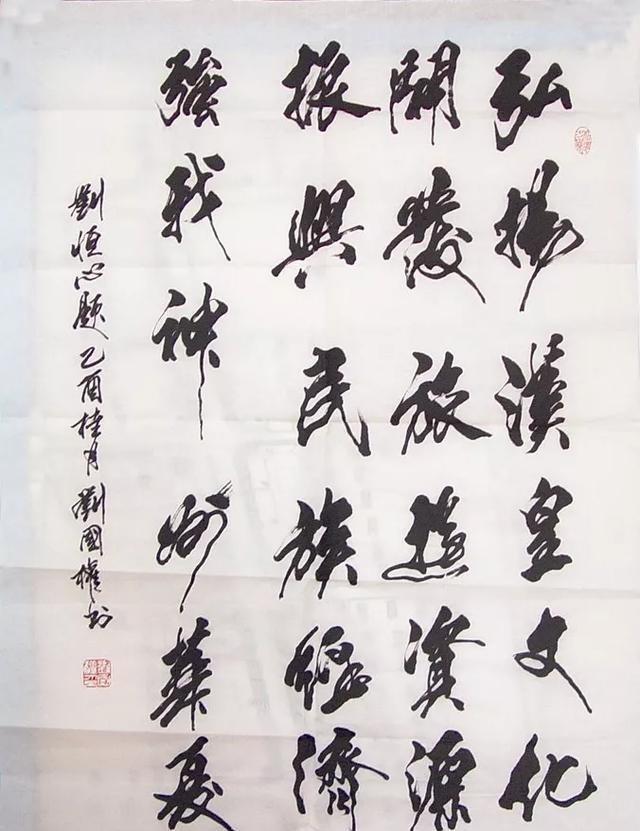 弘揚漢皇文化
開發旅遊資源
振興民族經濟
強我神州華夏
劉恒心題乙酉桂月劉國權书